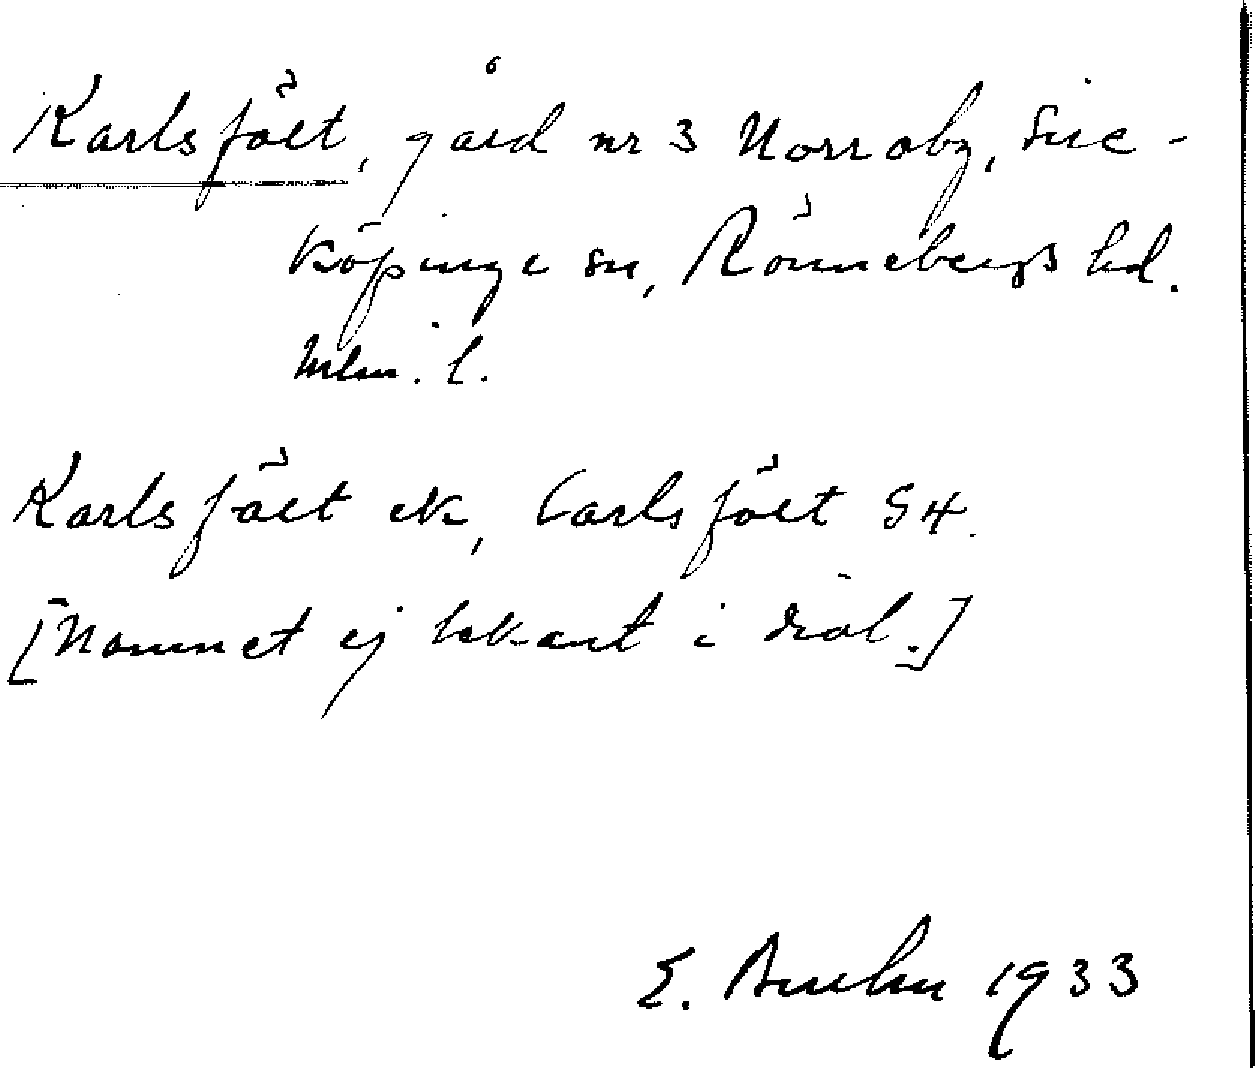 Karlsfält, gård nr 3 Norraby, Sire-
köpinge sn, Rönnebergs hd.
Mlm. l.
Karlsfält ek, Carlsfält G4.
[Namnet ej bekant i dial.]
E. 1933